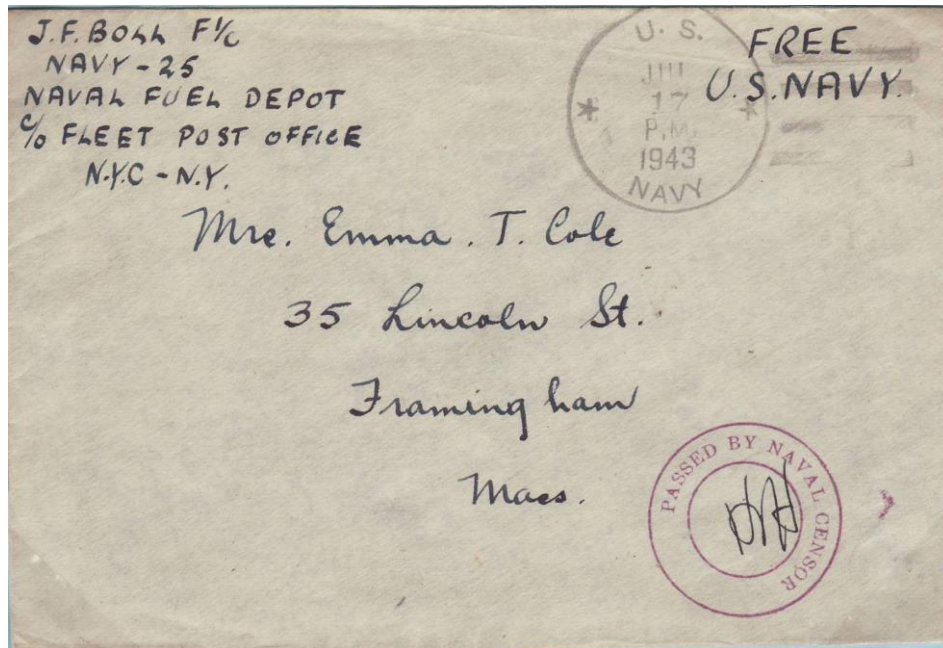 J.F. BOLL F 1/c
NAVY - 25
NAVAL FUEL DEPOT
c/o FLEET POST OFFICE
N.Y.C - N.Y.
U. S.
17
P.M.
1943
NAVY
FREE
U.S. NAVY.
Mrs. Emma. T. Cole
35 Lincoln St.
Framingham
Mass.
PASSED BY NAVAL CENSOR